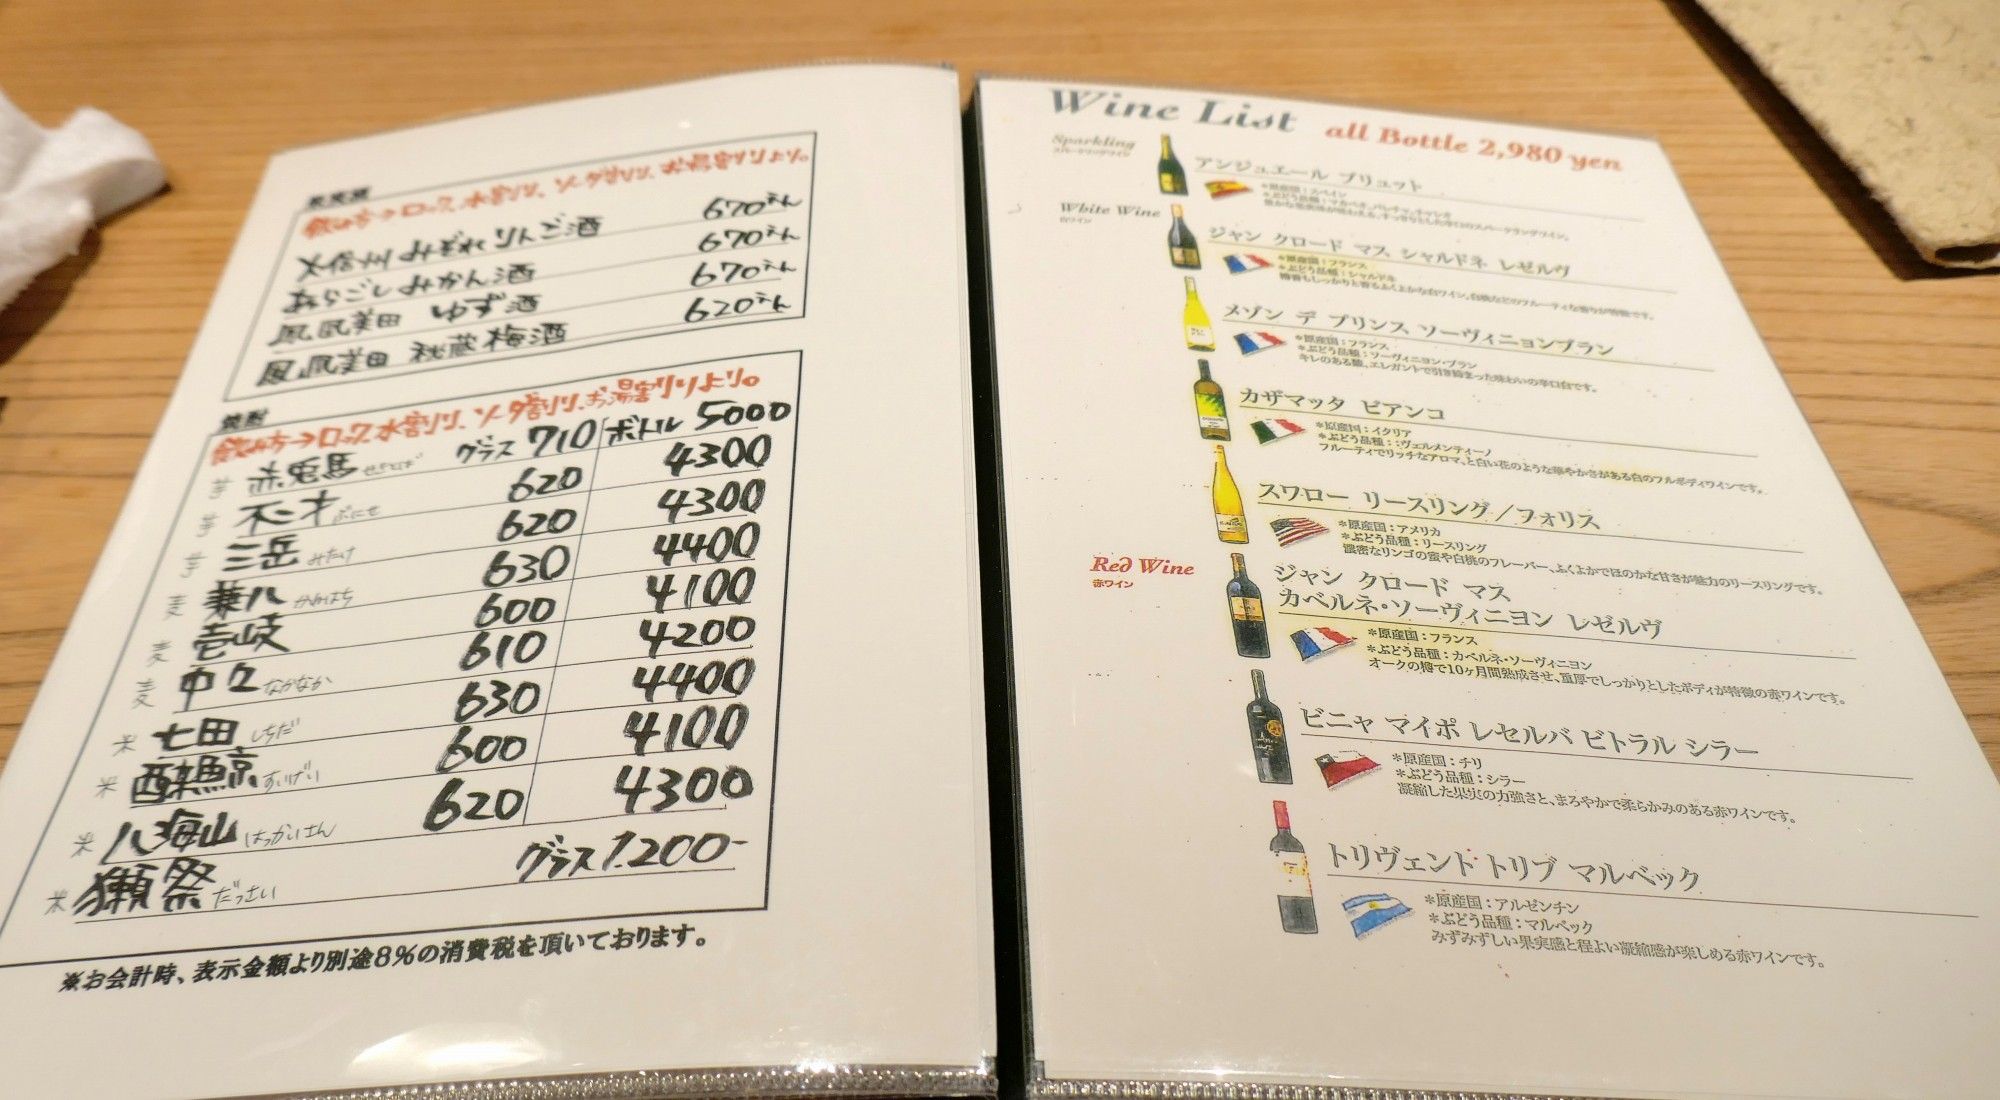 果実酒
飲み方→ロック、水割り、ソーダ割り、お湯割りより。
大信州みぞれりんご酒 670えん
あらごしみかん酒 670えん
鳳凰美田 ゆず酒 670えん
鳳凰美田 秘蔵梅酒 620えん
焼酎
飲み方→ロック、水割り、ソーダ割り、お湯割りより。
芋 赤兎馬 せきとば グラス 710 ボトル 5000
芋 不二才 ぶにせ 620 4300
芋 三岳 みたけ 620 4300
麦 兼八 かねはち 630 4400
麦 壱岐 600 4100
麦 中々 なかなか 610 4200
米 七田 しちだ 630 4400
米 酔鯨 すいげい 600 4100
米 八海山 はっかいさん 620 4300
米 獺祭 だっさい グラス 1.200-
※お会計時、表示金額より別途8%の消費税を頂いております。
Wine List all Bottle 2,980 yen
Sparkling
スパークリングワイン
アンジュエール ブリュット
*原産国:スペイン
*ぶどう品種:マカベオ、パレリャーダ、チャレッロ
White Wine
白ワイン
ジャン クロード マス シャルドネ レゼルヴ
*原産国:フランス
*ぶどう品種:シャルドネ
メゾン デ プリンス ソーヴィニョンブラン
*原産国:フランス
*ぶどう品種:ソーヴィニヨン・ブラン
キレのある酸、エレガントで引き締まった味わいの辛口白です。
カザマッタ ビアンコ
*原産国:イタリア
*ぶどう品種::ヴェルメンティーノ
フルーティでリッチなアロマ、と白い花のような華やかさがある白のフルボディワインです。
スワロー リースリング/フォリス
*原産国:アメリカ
*ぶどう品種:リースリング
濃密なリンゴの蜜や白桃のフレーバー、ふくよかでほのかな甘さが魅力のリースリングです。
Red Wine
赤ワイン
ジャン クロード マス
カベルネ・ソーヴィニヨン レゼルヴ
*原産国:フランス
*ぶどう品種:カベルネ・ソーヴィニヨン
オークの樽で10ヶ月間熟成させ、重厚でしっかりとしたボディが特徴の赤ワインです。
ビニャ マイポ レセルバ ビトラル シラー
*原産国:チリ
*ぶどう品種:シラー
凝縮した果実の力強さと、まろやかで柔らかみのある赤ワインです。
トリヴェント トリブ マルベック
*原産国:アルゼンチン
*ぶどう品種:マルベック
みずみずしい果実感と程よい凝縮感が楽しめる赤ワインです。